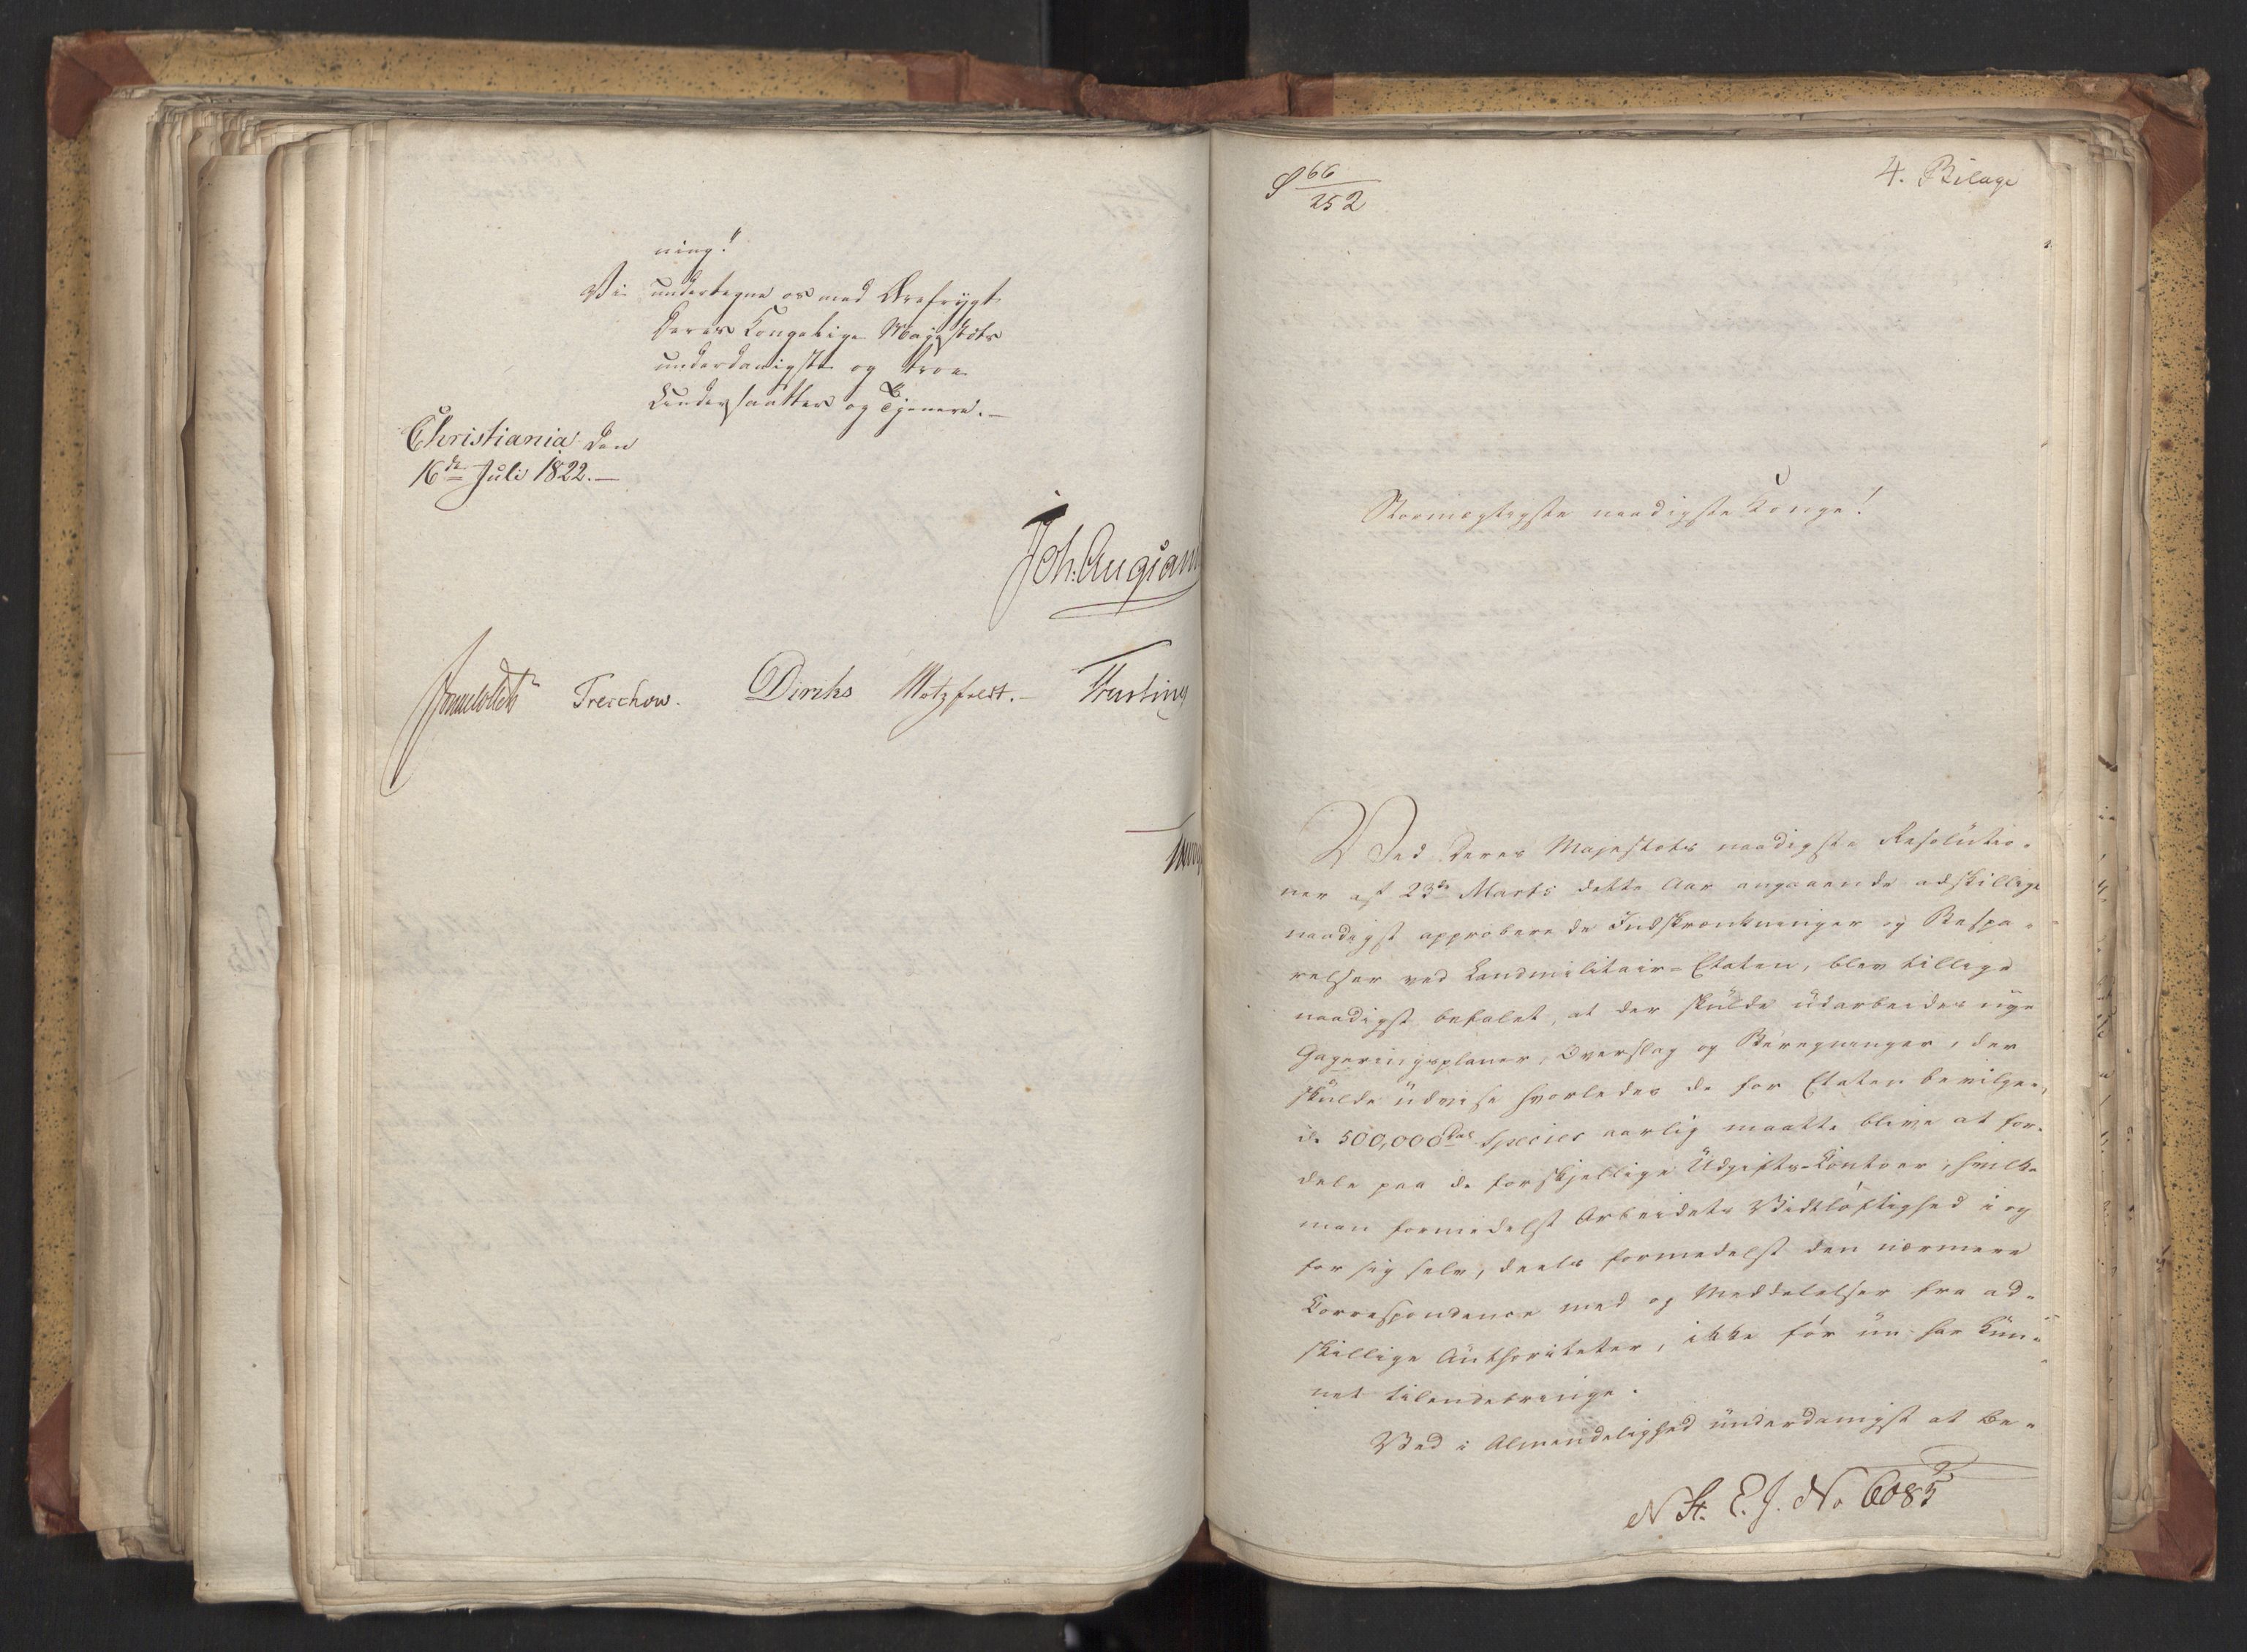 ning."
Vi undertegne os med Ærefrygt
Deres Kongelige Majestæts
underdanigste og troe
Undersaatter og Tjenere.—
Christiania den
16de Juli 1822.—
Joh. Aug:
Treschow. Diriks Motzfeldt.— Fasting
66
252
4. Bilage
Stormægtigste naadigste Konge!
Ved Deres Majestæts naadigste Resolutio-
ner af 23de Marts dette Aar angaaende adskillige
naadigst approberede Indskrænkninger og Bespa-
relser ved Landmilitair-Etaten, blev tillige
naadigst befalet, at der skulde udarbeides nye
Gageringsplaner, Overslag og Beregninger, der
skulde udvise hvorledes de for Etaten bevilge-
de 500,000 Dal Species aarlig maatte blive at for-
dele paa de forskjellige Udgifts-Contoer, hvilke
man formedelst Arbeidets Vidtløftighed i og
for sig selv, deels formedelst den nærmere
Correspondance med og Meddelelser fra ad-
skillige Authoriteter, ikke før nu har kun-
net tilendebringe.
Ved i Almindelighed underdanigst at be-
N St. E. J. No 6085